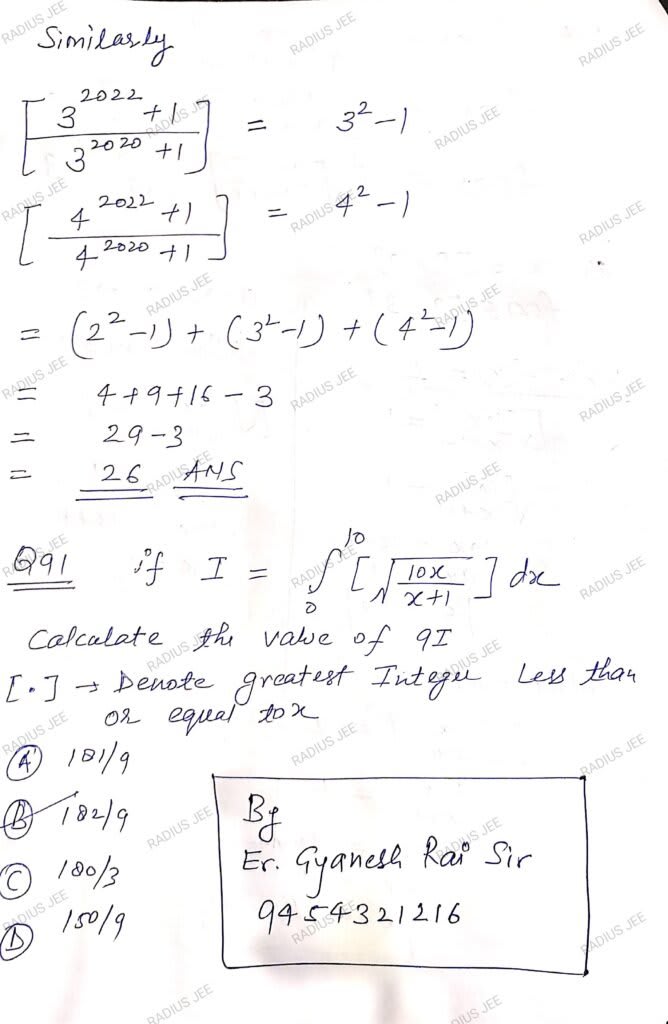 Similarly
[ 3^2022 + 1 / 3^2020 + 1 ] = 3^2 - 1
[ 4^2022 + 1 / 4^2020 + 1 ] = 4^2 - 1
= (2^2 - 1) + (3^2 - 1) + (4^2 - 1)
= 4 + 9 + 16 - 3
= 29 - 3
= 26 ANS
Q91 if I = ∫_0^10 [ √(10x / x+1) ] dx
Calculate the value of 9I
[.] → Denote greatest Integer Less than
or equal to x
(A) 181/9
(B) 182/9
(C) 180/3
(D) 150/9
By
Er. Gyanesh Rai Sir
9454321216
RADIUS JEE